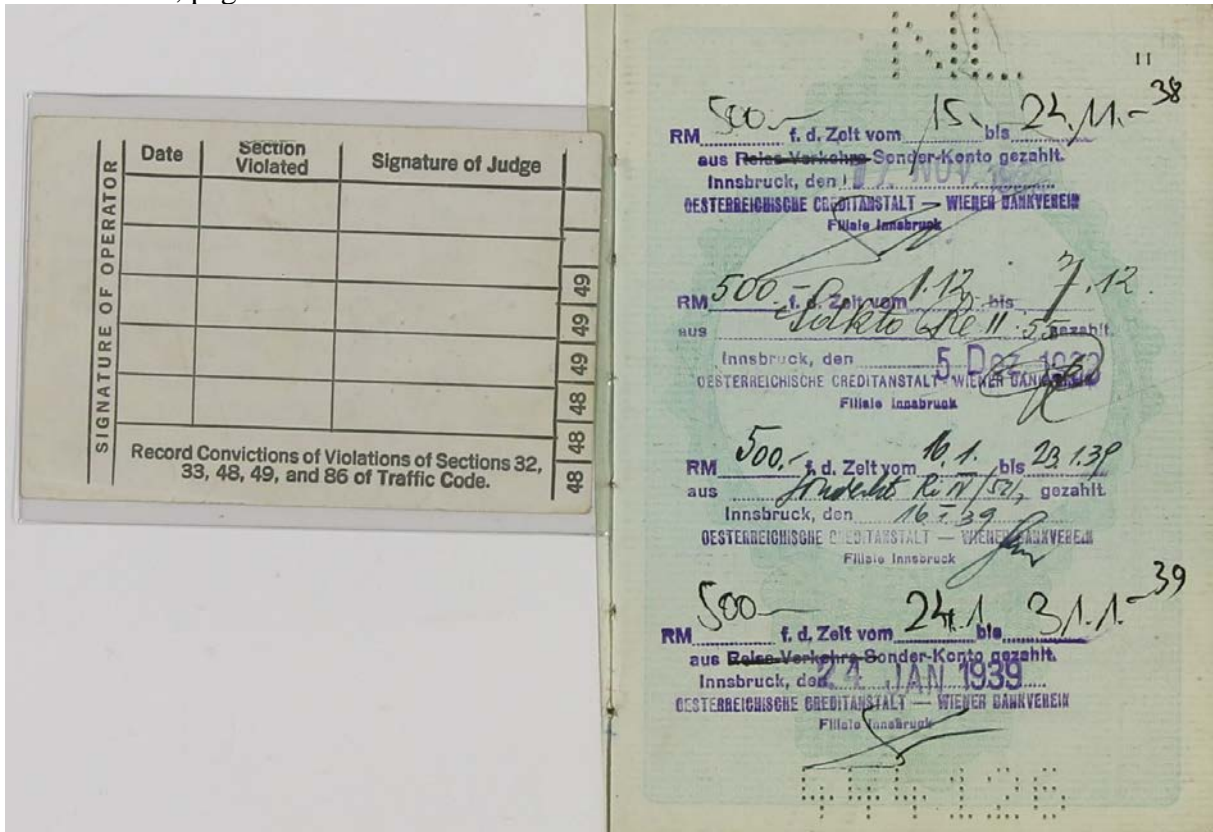 SIGNATURE OF OPERATOR
Date Section Violated Signature of Judge
49
49
49
48
48
48
Record Convictions of Violations of Sections 32,
33, 48, 49, and 86 of Traffic Code.
11
RM 500.– f. d. Zeit vom 15. bis 24.11.–38
aus Reise-Verkehrs-Sonder-Konto gezahlt.
Innsbruck, den 17. NOV.
OESTERREICHISCHE CREDITANSTALT — WIENER BANKVEREIN
Filiale Innsbruck
RM 500.– f. d. Zeit vom 1.12. bis 7.12.
aus gezahlt.
Innsbruck, den 5. Dez.
OESTERREICHISCHE CREDITANSTALT – WIENER BANKVEREIN
Filiale Innsbruck
RM 500.– f. d. Zeit vom 16.1. bis 23.1.39
aus gezahlt.
Innsbruck, den 16 I 39
OESTERREICHISCHE CREDITANSTALT — WIENER BANKVEREIN
Filiale Innsbruck
RM 500.– f. d. Zeit vom 24.1. bis 31.1.–39
aus Reise-Verkehrs-Sonder-Konto gezahlt.
Innsbruck, den 24 JAN 1939
OESTERREICHISCHE CREDITANSTALT — WIENER BANKVEREIN
Filiale Innsbruck